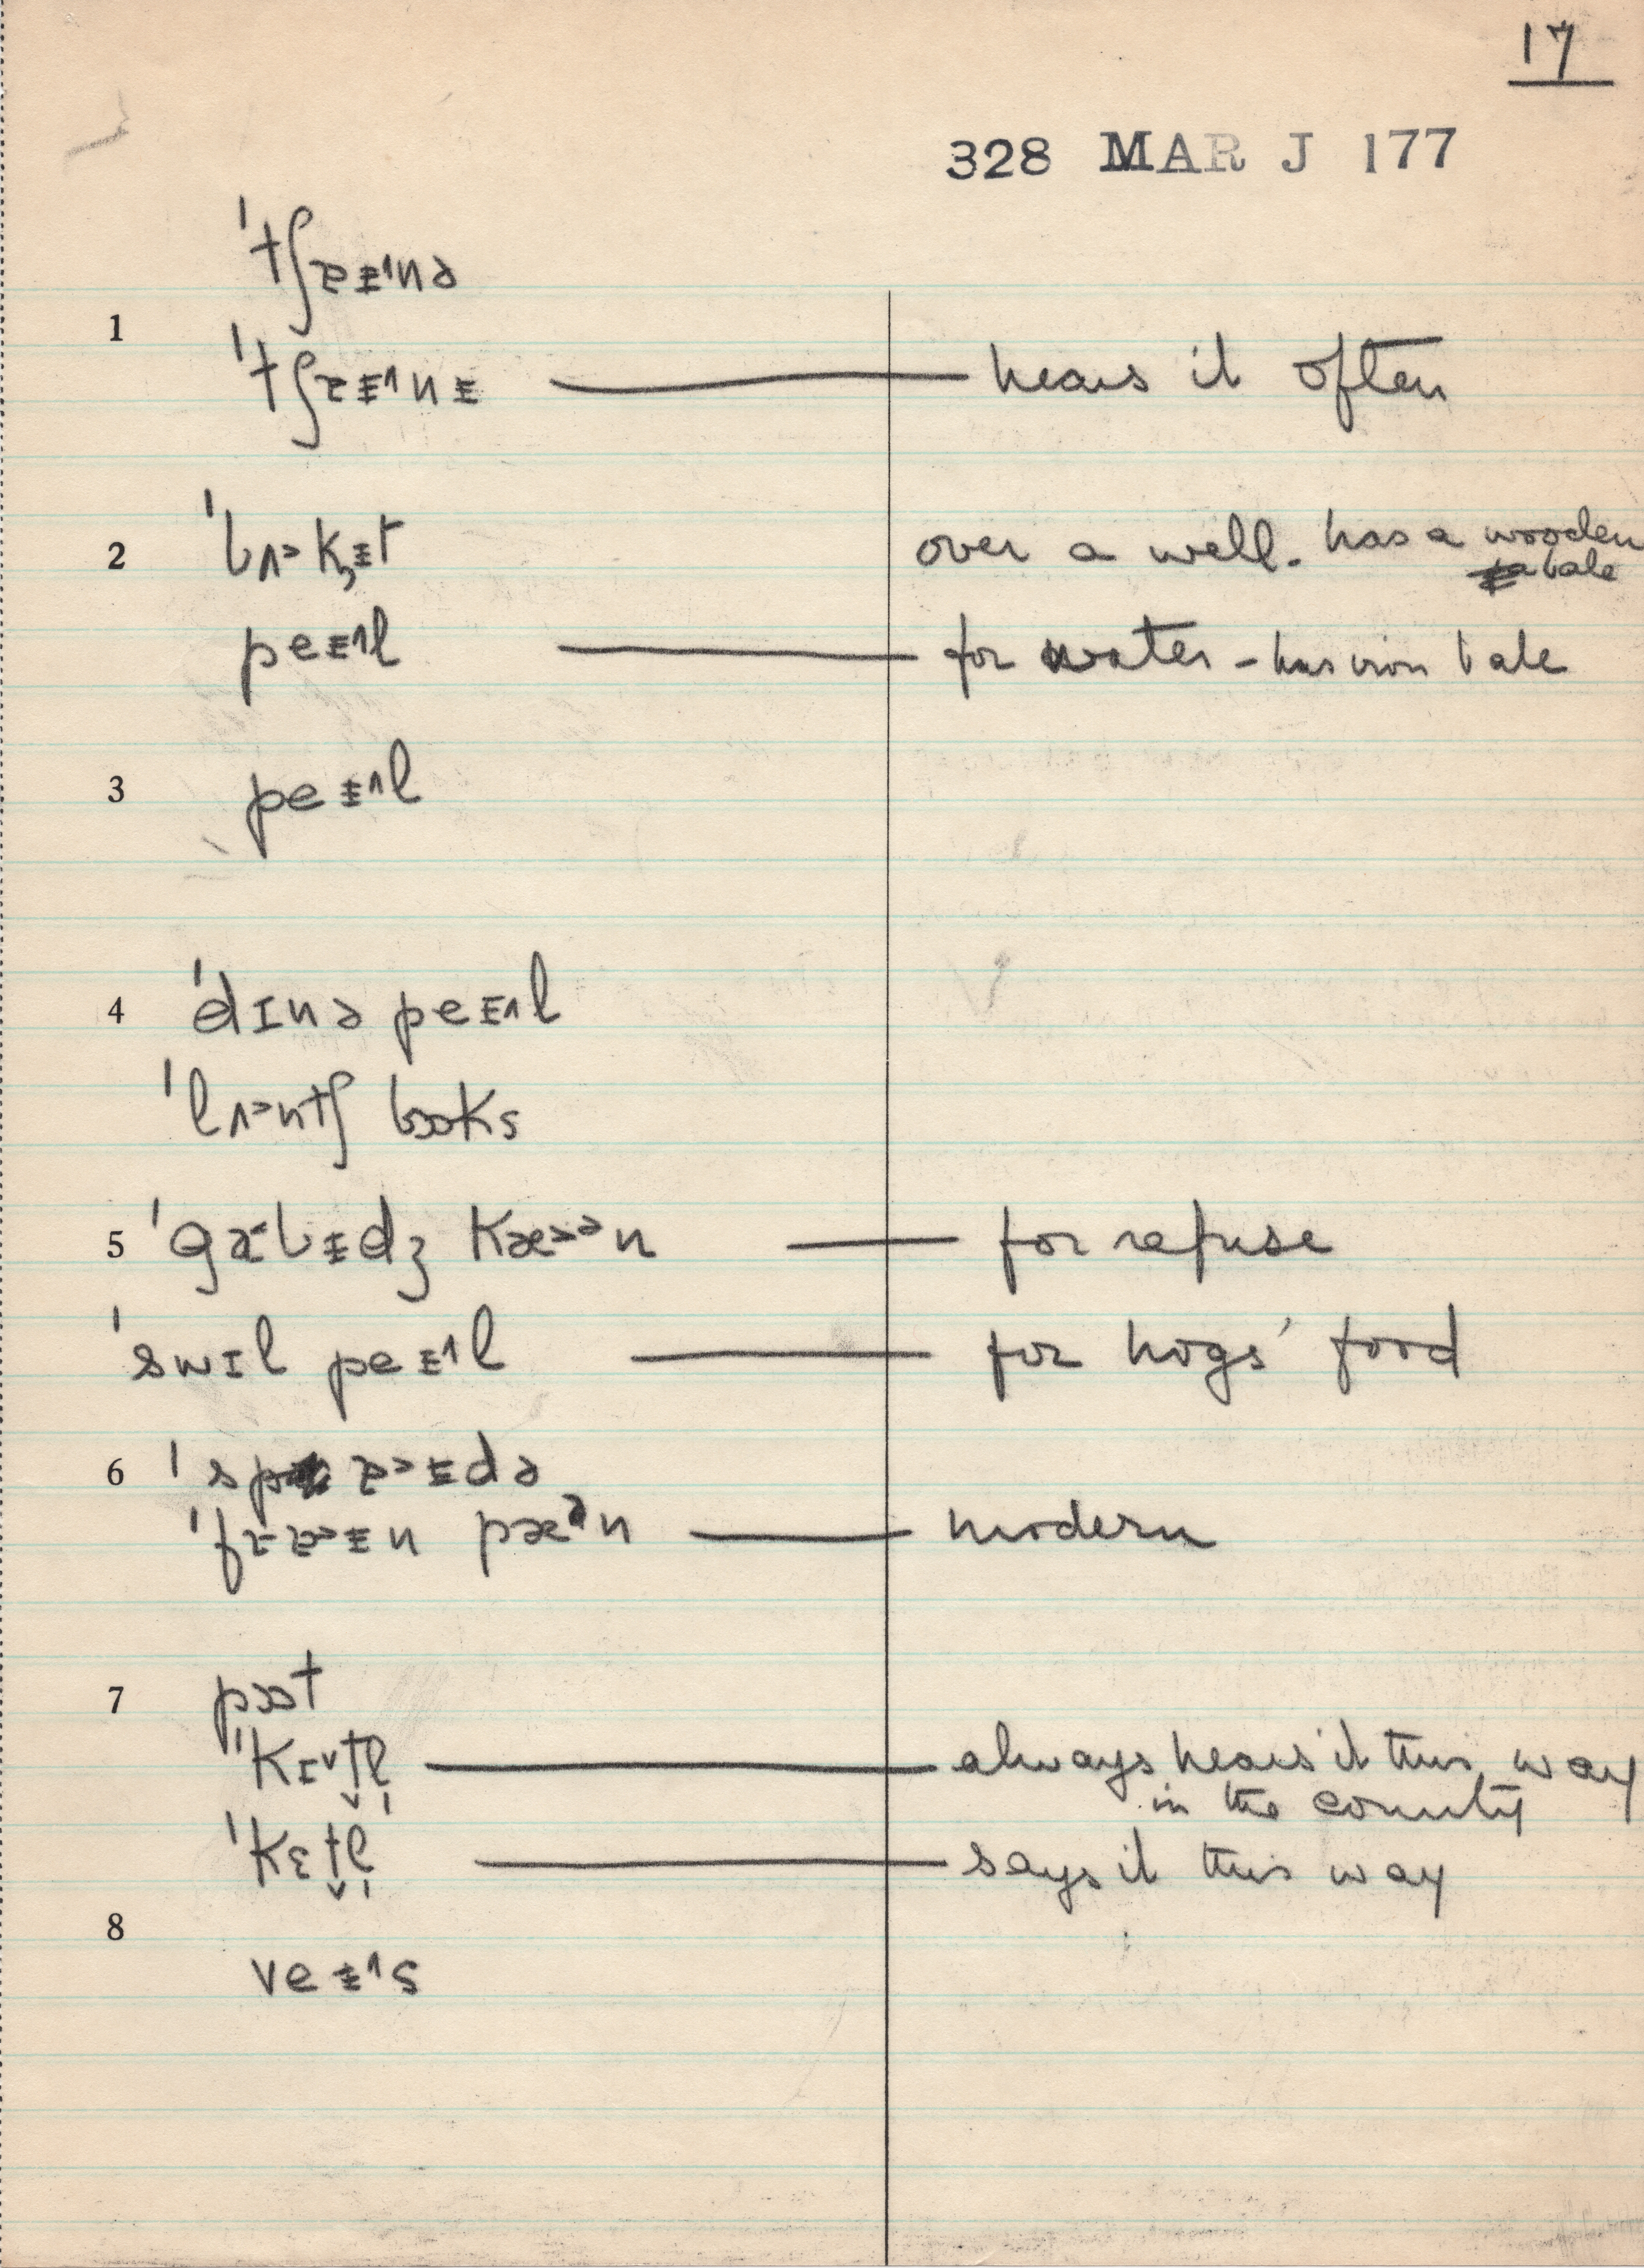 17
328 MAR J 177
ˈtʃɐɪ̵˄nə
1
ˈtʃɐɪ̵˄nɪ̵ — hears it often
2 ˈbʌ˃k̟ɪ̵t over a well. has a wooden
bale
peɪ̵˄l — for water – has iron bale
3 peɪ̵˄l
4 ˈdɪnə peɪ̵˄l
ˈlʌ˃ntʃ bɒks
5 ˈgɑbɪ̵dʒ kæ˃ᵊn — for refuse
ˈswɪl peɪ̵˄l — for hogs' food
6 ˈspɐ˃ɪ̵də
ˈfɹɐ˃ɪ̵n pæᵊn — modern
7 pɒt
ˈkɪ˅t̬l̩ — always hears it this way
in the county
ˈkɛt̬l̩ — says it this way
8
veɪ̵˄s